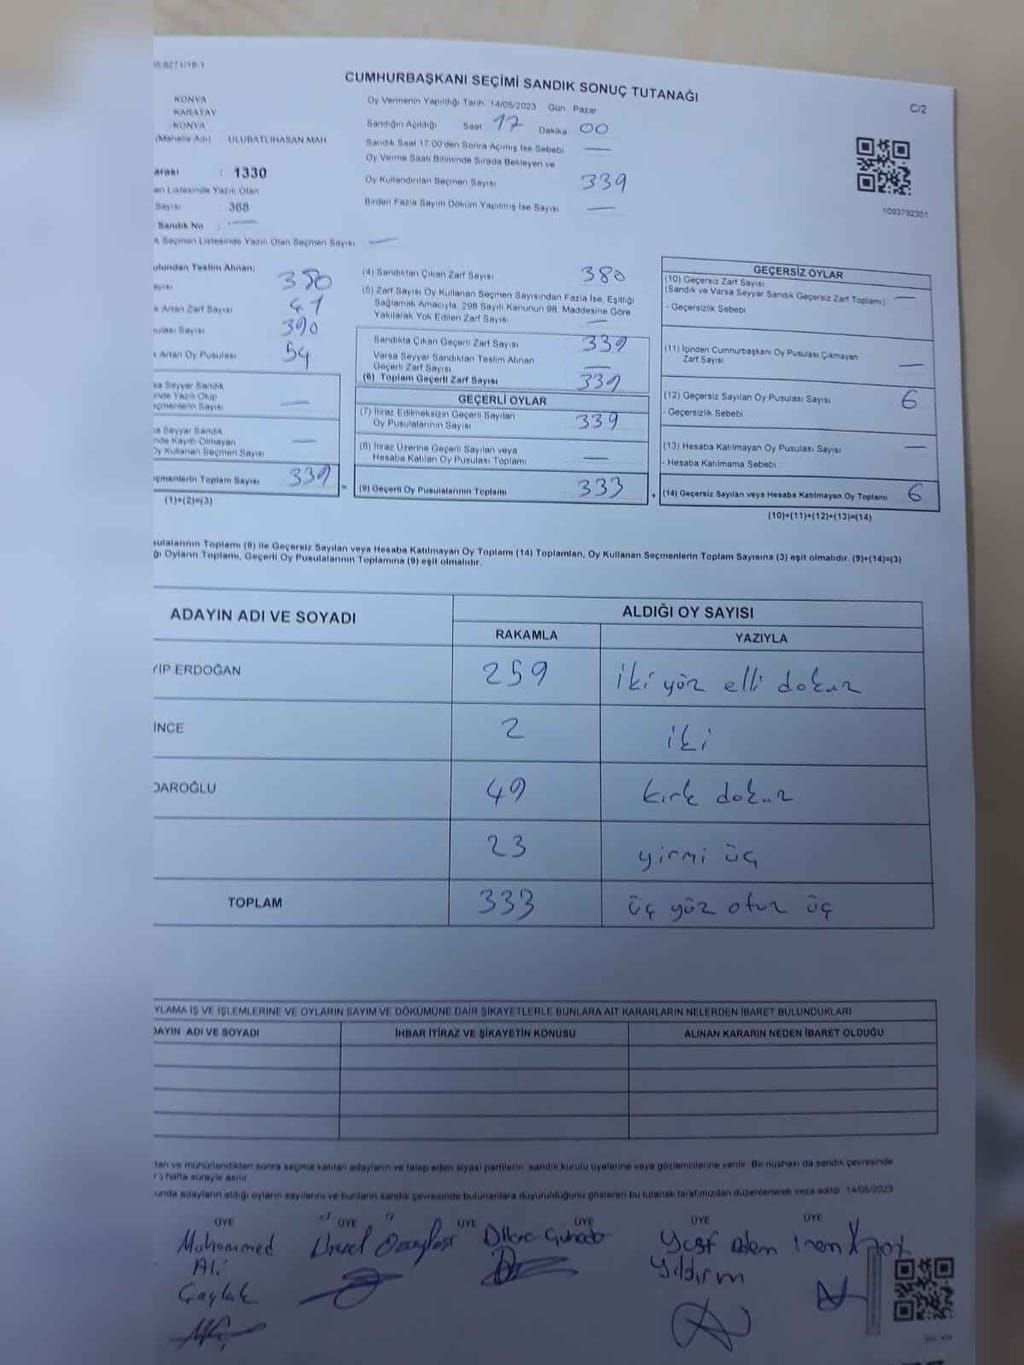 CUMHURBAŞKANI SEÇİMİ SANDIK SONUÇ TUTANAĞI
C/2
KONYA
KARATAY
KONYA
(Mahalle Adı) ULUBATLIHASAN MAH
Oy Vermenin Yapıldığı Tarih 14/05/2023 Gün Pazar
Sandığın Açıldığı Saat 17 Dakika 00
Sandık Saat 17:00'den Sonra Açılmış İse Sebebi —
Oy Verme Saati Bitiminde Sırada Bekleyen ve
Oy Kullandırılan Seçmen Sayısı 339
Birden Fazla Sayım Döküm Yapılmış İse Sayısı —
1093792351
arası : 1330
en Listesinde Yazılı Olan
Sayısı : 368
Sandık No : —
k Seçmen Listesinde Yazılı Olan Seçmen Sayısı —
ulundan Teslim Alınan;
ayısı 380
k Artan Zarf Sayısı 41
ulası Sayısı 390
k Artan Oy Pusulası 54
sa Seyyar Sandık
inde Yazılı Olup
eçmenlerin Sayısı —
sa Seyyar Sandık
nde Kayıtlı Olmayan
Oy Kullanan Seçmen Sayısı —
eçmenlerin Toplam Sayısı 339 =
(1)+(2)=(3)
(4) Sandıktan Çıkan Zarf Sayısı 380
(5) Zarf Sayısı Oy Kullanan Seçmen Sayısından Fazla İse, Eşitliği
Sağlamak Amacıyla, 298 Sayılı Kanunun 98. Maddesine Göre
Yakılarak Yok Edilen Zarf Sayısı —
Sandıkta Çıkan Geçerli Zarf Sayısı 339
Varsa Seyyar Sandıktan Teslim Alınan
Geçerli Zarf Sayısı —
(6) Toplam Geçerli Zarf Sayısı 339
GEÇERLİ OYLAR
(7) İtiraz Edilmeksizin Geçerli Sayılan
Oy Pusulalarının Sayısı 339
(8) İtiraz Üzerine Geçerli Sayılan veya
Hesaba Katılan Oy Pusulası Toplamı —
(9) Geçerli Oy Pusulalarının Toplamı 333 +
GEÇERSİZ OYLAR
(10) Geçersiz Zarf Sayısı
(Sandık ve Varsa Seyyar Sandık Geçersiz Zarf Toplamı) —
- Geçersizlik Sebebi
(11) İçinden Cumhurbaşkanı Oy Pusulası Çıkmayan
Zarf Sayısı —
(12) Geçersiz Sayılan Oy Pusulası Sayısı 6
- Geçersizlik Sebebi
(13) Hesaba Katılmayan Oy Pusulası Sayısı —
- Hesaba Katılmama Sebebi
(14) Geçersiz Sayılan veya Hesaba Katılmayan Oy Toplamı 6
(10)+(11)+(12)+(13)=(14)
usulalarının Toplamı (9) ile Geçersiz Sayılan veya Hesaba Katılmayan Oy Toplamı (14) Toplamları, Oy Kullanan Seçmenlerin Toplam Sayısına (3) eşit olmalıdır. (9)+(14)=(3)
ğı Oyların Toplamı, Geçerli Oy Pusulalarının Toplamına (9) eşit olmalıdır.
ADAYIN ADI VE SOYADI ALDIĞI OY SAYISI
RAKAMLA YAZIYLA
YİP ERDOĞAN 259 iki yüz elli dokuz
İNCE 2 iki
DAROĞLU 49 kırk dokuz
23 yirmi üç
TOPLAM 333 üç yüz otuz üç
YLAMA İŞ VE İŞLEMLERİNE VE OYLARIN SAYIM VE DÖKÜMÜNE DAİR ŞİKAYETLERLE BUNLARA AİT KARARLARIN NELERDEN İBARET BULUNDUKLARI
DAYIN ADI VE SOYADI İHBAR İTİRAZ VE ŞİKAYETİN KONUSU ALINAN KARARIN NEDEN İBARET OLDUĞU
ları ve mühürlendikten sonra seçime katılan adayların ve talep eden siyasi partilerin sandık kurulu üyelerine veya gözlemcilerine verilir. Bir nüshası da sandık çevresinde
r ) hafta süreyle asılır.
unda adayların aldığı oyların sayılarını ve bunların sandık çevresinde bulunanlara duyurulduğunu gösteren bu tutanak tarafımızdan düzenlenerek imza edildi. 14/05/2023
ÜYE ÜYE ÜYE ÜYE ÜYE ÜYE
Mohammed
Ali
Çaylak
Yusf Adem
Yıldırım